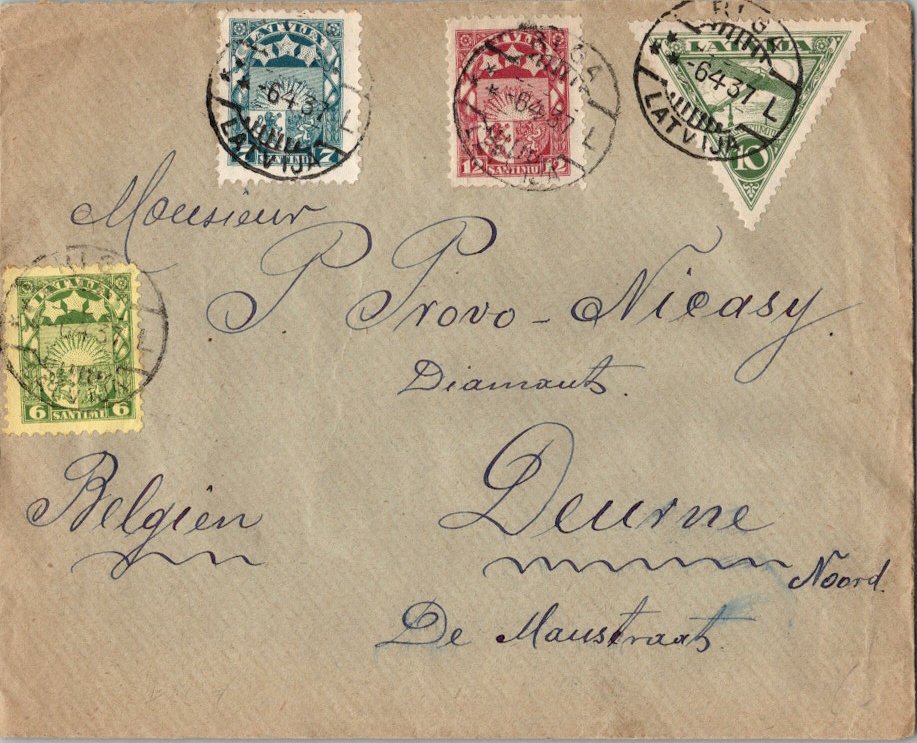 LATVIJA
7 SANTIMU 7
-6 4 37
LATVIJA L
LATVIJA
12 SANTIMU 12
RIGA
-6 4 37
L
LATVIJA
10 SANTIMU
RIGA
-6 4 37
LATVIJA L
Monsieur
P. Provo - Nicasy
Diamants
LATVIJA
6 SANTIMU 6
Belgien
Deurne
Noord.
De Maustraat